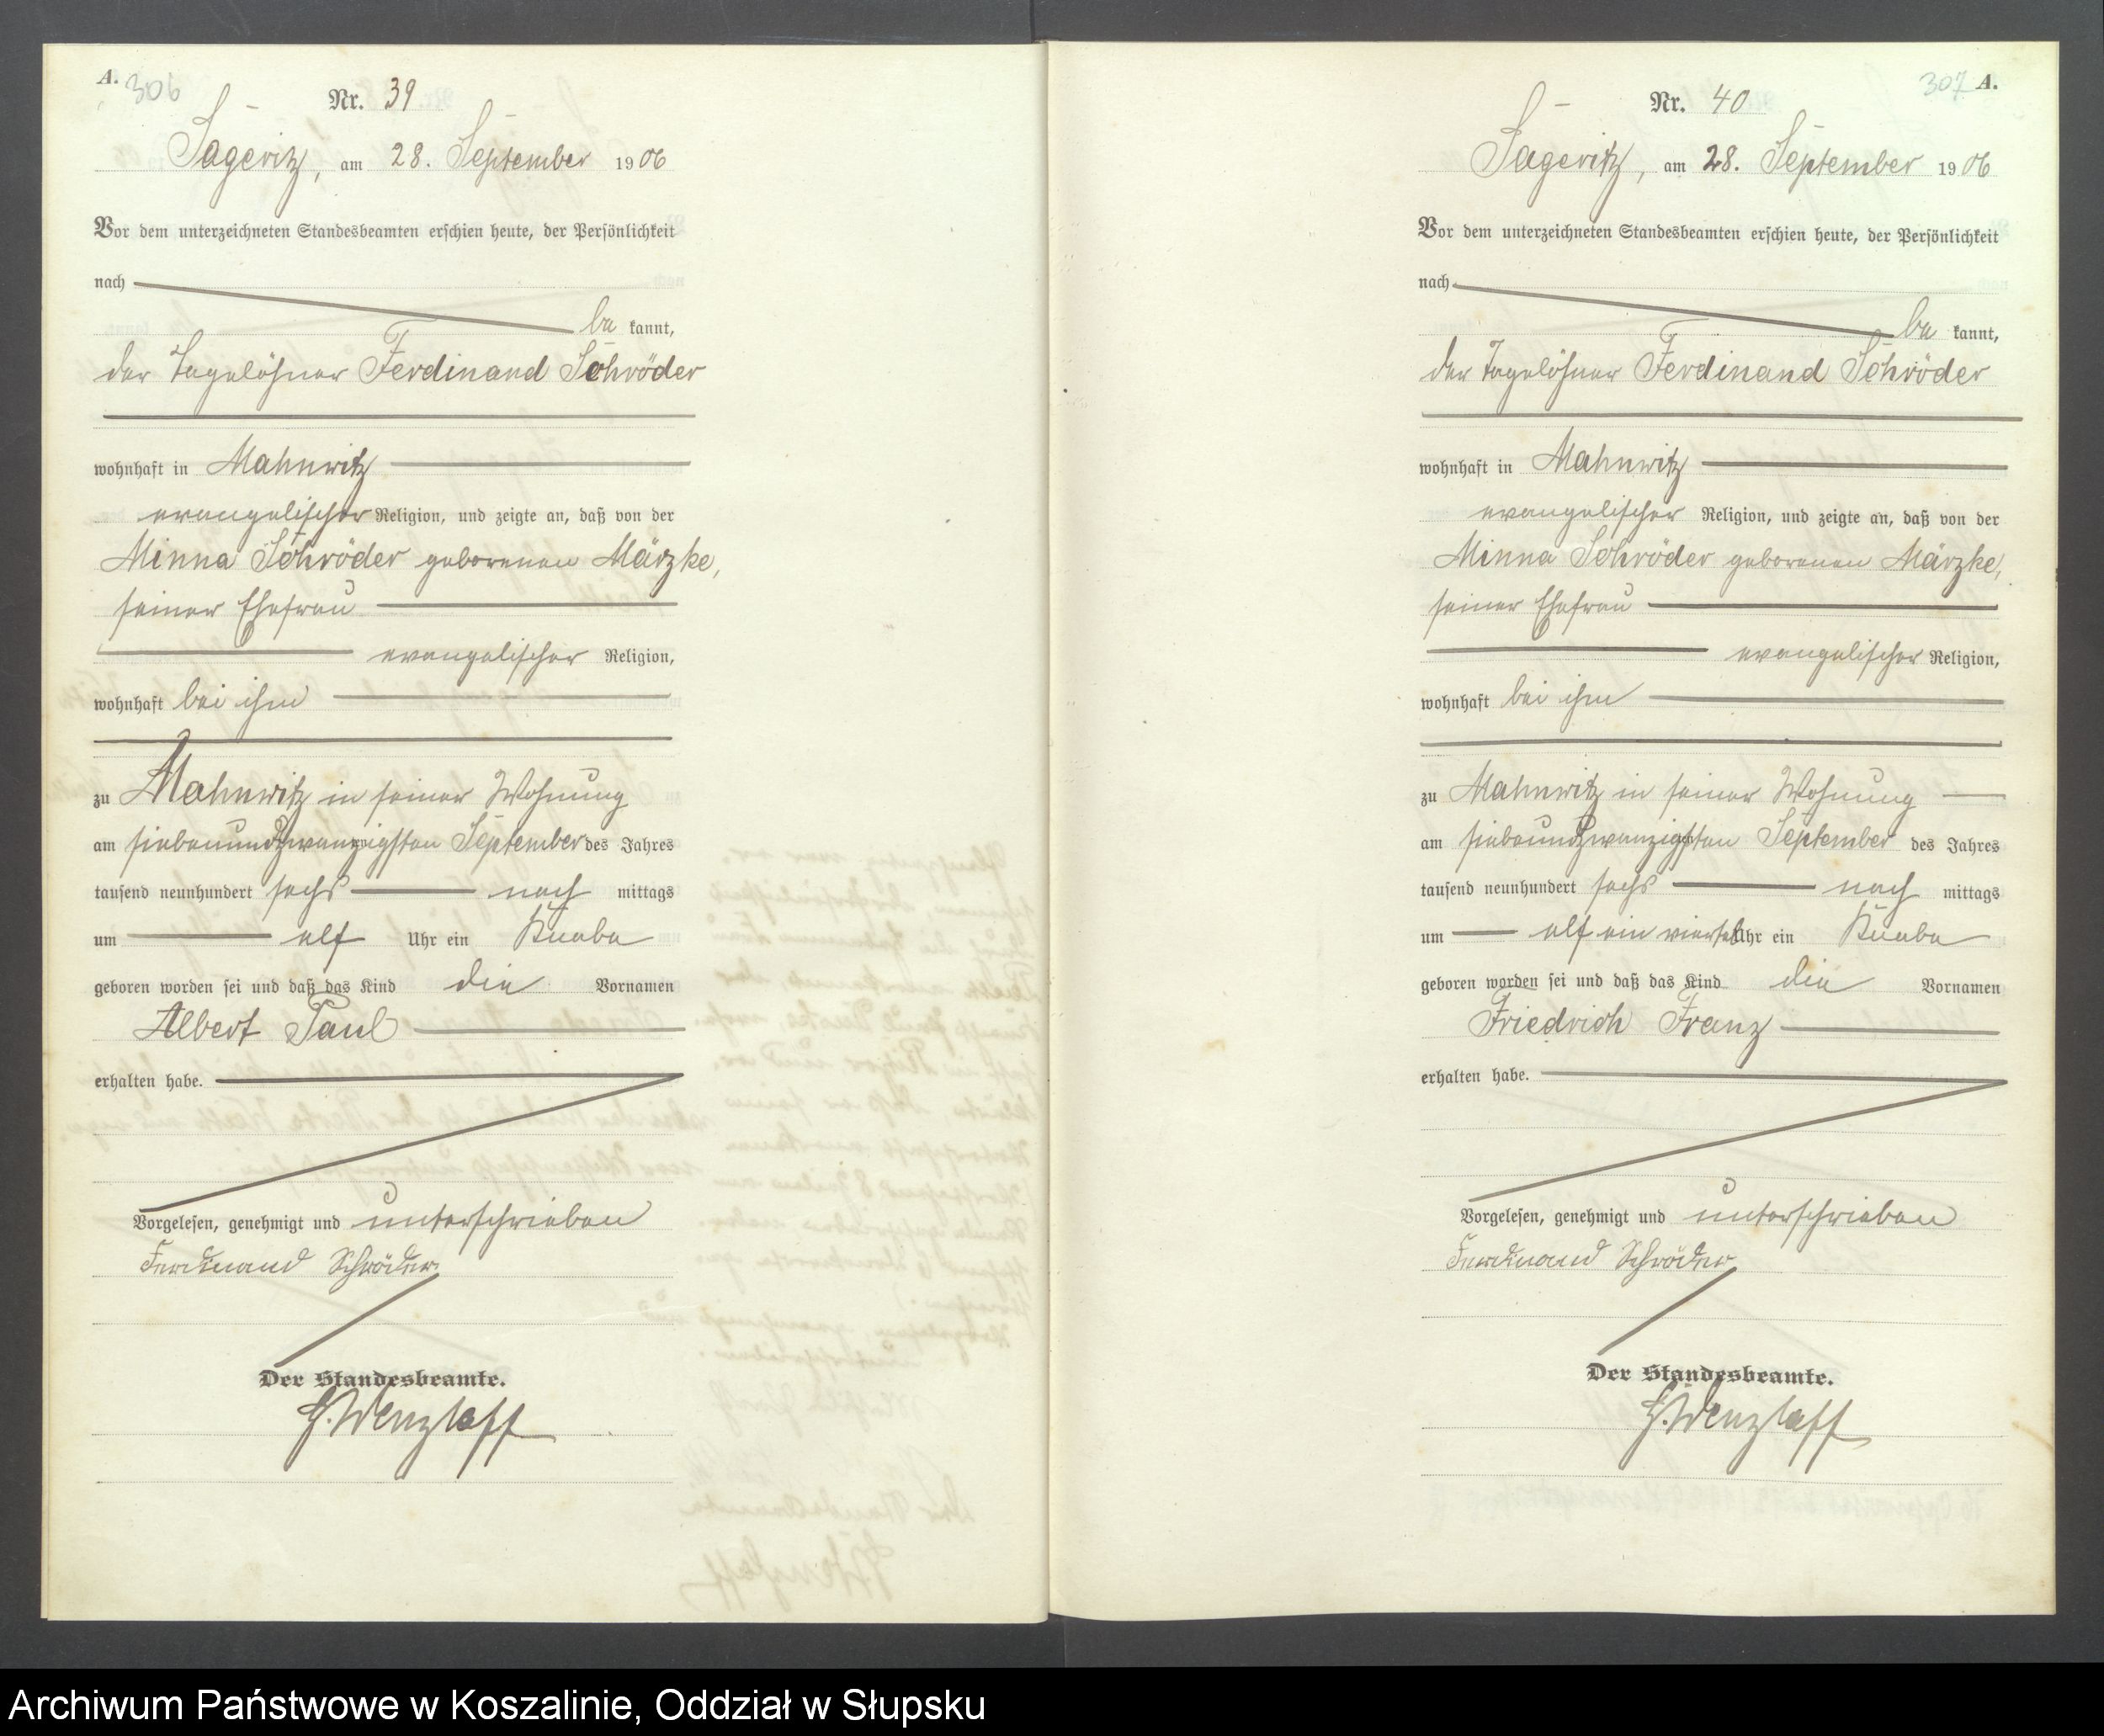 A.
306
Nr. 39
Sageritz, am 28. September 1906
Vor dem unterzeichneten Standesbeamten erschien heute, der Persönlichkeit
nach
be kannt,
der Tagelöhner Ferdinand Schröder
wohnhaft in Mahnwitz
evangelischer Religion, und zeigte an, daß von der
Minna Schröder geborenen Märzke,
seiner Ehefrau
evangelischer Religion,
wohnhaft bei ihm
zu Mahnwitz in seiner Wohnung
am siebenundzwanzigsten September des Jahres
tausend neunhundert sechs nach mittags
um elf Uhr ein Knabe
geboren worden sei und daß das Kind die Vornamen
Albert Paul
erhalten habe.
Vorgelesen, genehmigt und unterschrieben
Ferdinand Schröder
Der Standesbeamte.
G. Wenzlaff
307 A.
Nr. 40
Sageritz, am 28. September 1906
Vor dem unterzeichneten Standesbeamten erschien heute, der Persönlichkeit
nach
be kannt,
der Tagelöhner Ferdinand Schröder
wohnhaft in Mahnwitz
evangelischer Religion, und zeigte an, daß von der
Minna Schröder geborenen Märzke,
seiner Ehefrau
evangelischer Religion,
wohnhaft bei ihm
zu Mahnwitz in seiner Wohnung
am siebenundzwanzigsten September des Jahres
tausend neunhundert sechs nach mittags
um elf ein viertel Uhr ein Knabe
geboren worden sei und daß das Kind die Vornamen
Friedrich Franz
erhalten habe.
Vorgelesen, genehmigt und unterschrieben
Ferdinand Schröder
Der Standesbeamte.
G. Wenzlaff
Archiwum Państwowe w Koszalinie, Oddział w Słupsku